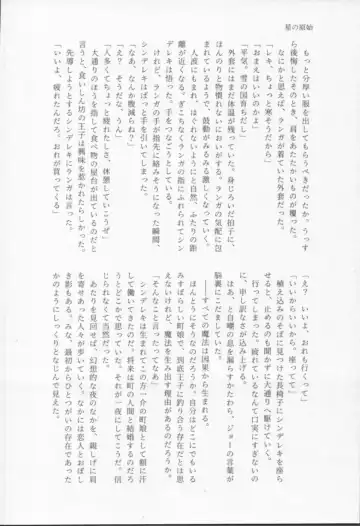 星の原始
もっと分厚い服を出してもらうべきだったか。うっす
ら後悔したそのとき、肩をあたたかいものが覆った。
なにかと思えば、ランガが着ていた外套だった。
「レキ、ちょっと寒そうだから」
「おまえはいいのかよ」
「平気。雪の国育ちだし」
外套にはまだ体温が残っていた。身じろいだ拍子に、
ほんのりと物慣れない匂いがする。ランガの気配に包
まれているようで、鼓動がみるみる激しくなっていく。
人波にもまれ、はぐれないようにと自然、ふたりの距
離が近くなる。ぎこちなくランガの指にふれられてシン
デレキは悟った。手をつなごうとしている。
けれど、ランガの手が指先に絡みそうになった瞬間、
シンデレキはぱっと手を引いてしまった。
「なあ、なんか腹減らね？」
「え？　そうだな、うん」
「人多くてちょっと疲れたしさ、休憩していこうぜ」
大通りのほうを指して食べ物の屋台が出ているのだと
言うと、食いしん坊の王子は興味を惹かれたらしかった。
先導しようとするシンデレキにランガは言った。
「いいよ、疲れてんだろ。おれが買ってくる」
「え？　いいよ、おれも行くって」
「いいからいいから、座ってて」
植え込みのそばで見つけた長椅子にシンデレキを座ら
せると、止めるのも聞かずに大通りへ駆けていく。
行ってしまった。疲れているなんて口実にすぎないの
に、申し訳なさが込み上げる。
はあ、と自嘲の息を漏らすかたわら、ジョーの言葉が
脳裏にこだましていた。
――すべての魔法は因果から生まれる。
ほんとうにそうなのだろうか。自分はどこにでもいる
みすぼらしい町娘で、到底王子に釣り合う存在だとは思
えないけれど、魔法を生み出す理由があるのだろうか。
「そんなこと言ったってなあ」
シンデレキは生まれてこの方一介の町娘として額に汗
して働いてきたのだ。将来は町の人間と結婚するのだろ
うとどこかで思っていた。それが一夜にしてこうだ。信
じられなくて当然だった。
あたりを見回せば、幻想的な夜のなかを、親しげに肩
を寄せあった人々が歩いていく。なかには恋人とおぼし
き影もある。みな、最初からひとつがいの存在であった
かのようにしっくりとなじんで見えた。